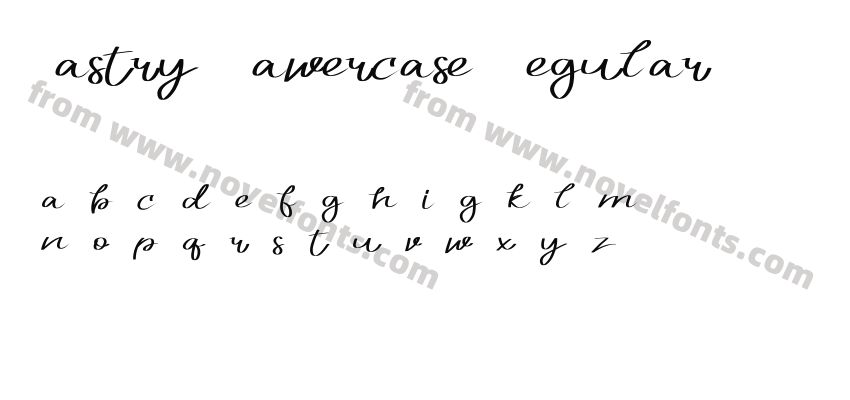 astry awercase egular
from www.novelfonts.com from www.novelfonts.com
a b c d e f g h i g k l m
n o p q r s t u v w x y z